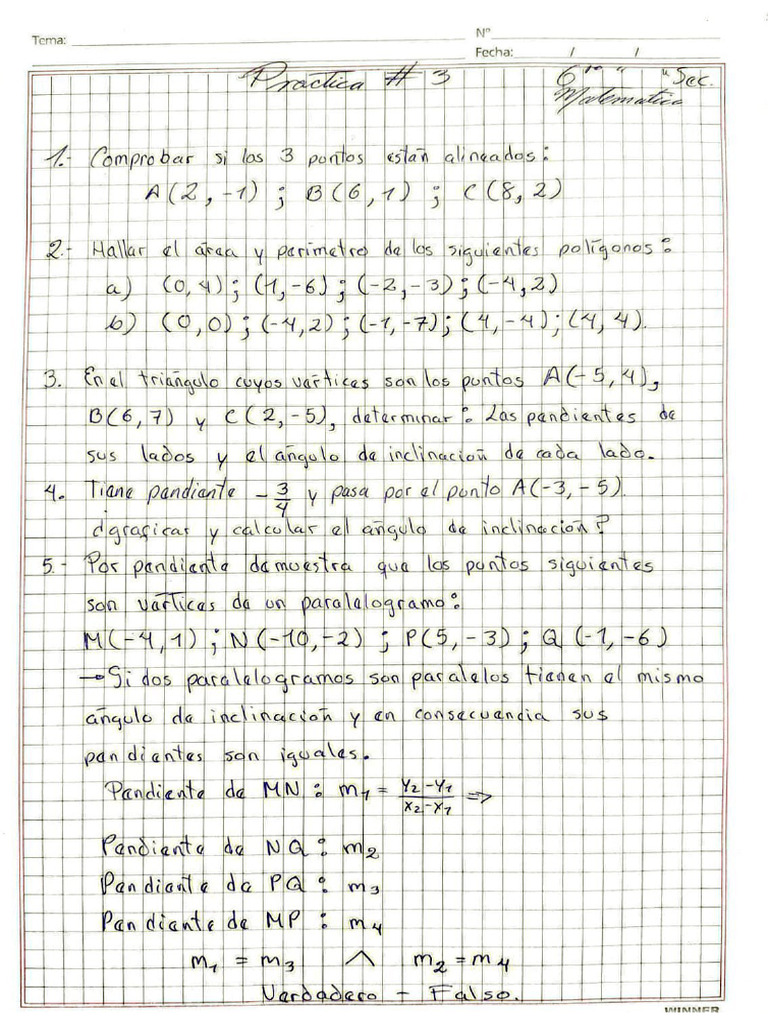 Tema:
Nº
Fecha: / /
Practica # 3
6to " " Sec.
Matematica
1.- Comprobar si los 3 puntos están alineados:
A(2,-1) ; B(6,1) ; C(8,2)
2.- Hallar el área y perimetro de los siguientes polígonos:
a) (0,4); (1,-6); (-2,-3); (-4,2)
b) (0,0); (-4,2); (-1,-7); (4,-4); (4,4).
3. En el triángulo cuyos vértices son los puntos A(-5,4),
B(6,7) y C(2,-5), determinar: Las pendientes de
sus lados y el ángulo de inclinación de cada lado.
4. Tiene pendiente -3/4 y pasa por el punto A(-3,-5).
¿graficar y calcular el ángulo de inclinación?
5.- Por pendiente demuestra que los puntos siguientes
son vértices de un paralelogramo:
M(-4,1) ; N(-10,-2) ; P(5,-3) ; Q(-1,-6)
→ Si dos paralelogramos son paralelos tienen el mismo
ángulo de inclinación y en consecuencia sus
pendientes son iguales.
Pendiente de MN : m₁ = y₂-y₁/x₂-x₁ ⇒
Pendiente de NQ : m₂
Pendiente de PQ : m₃
Pendiente de MP : m₄
m₁ = m₃ ∧ m₂ = m₄
Verdadero - Falso.
WINNER